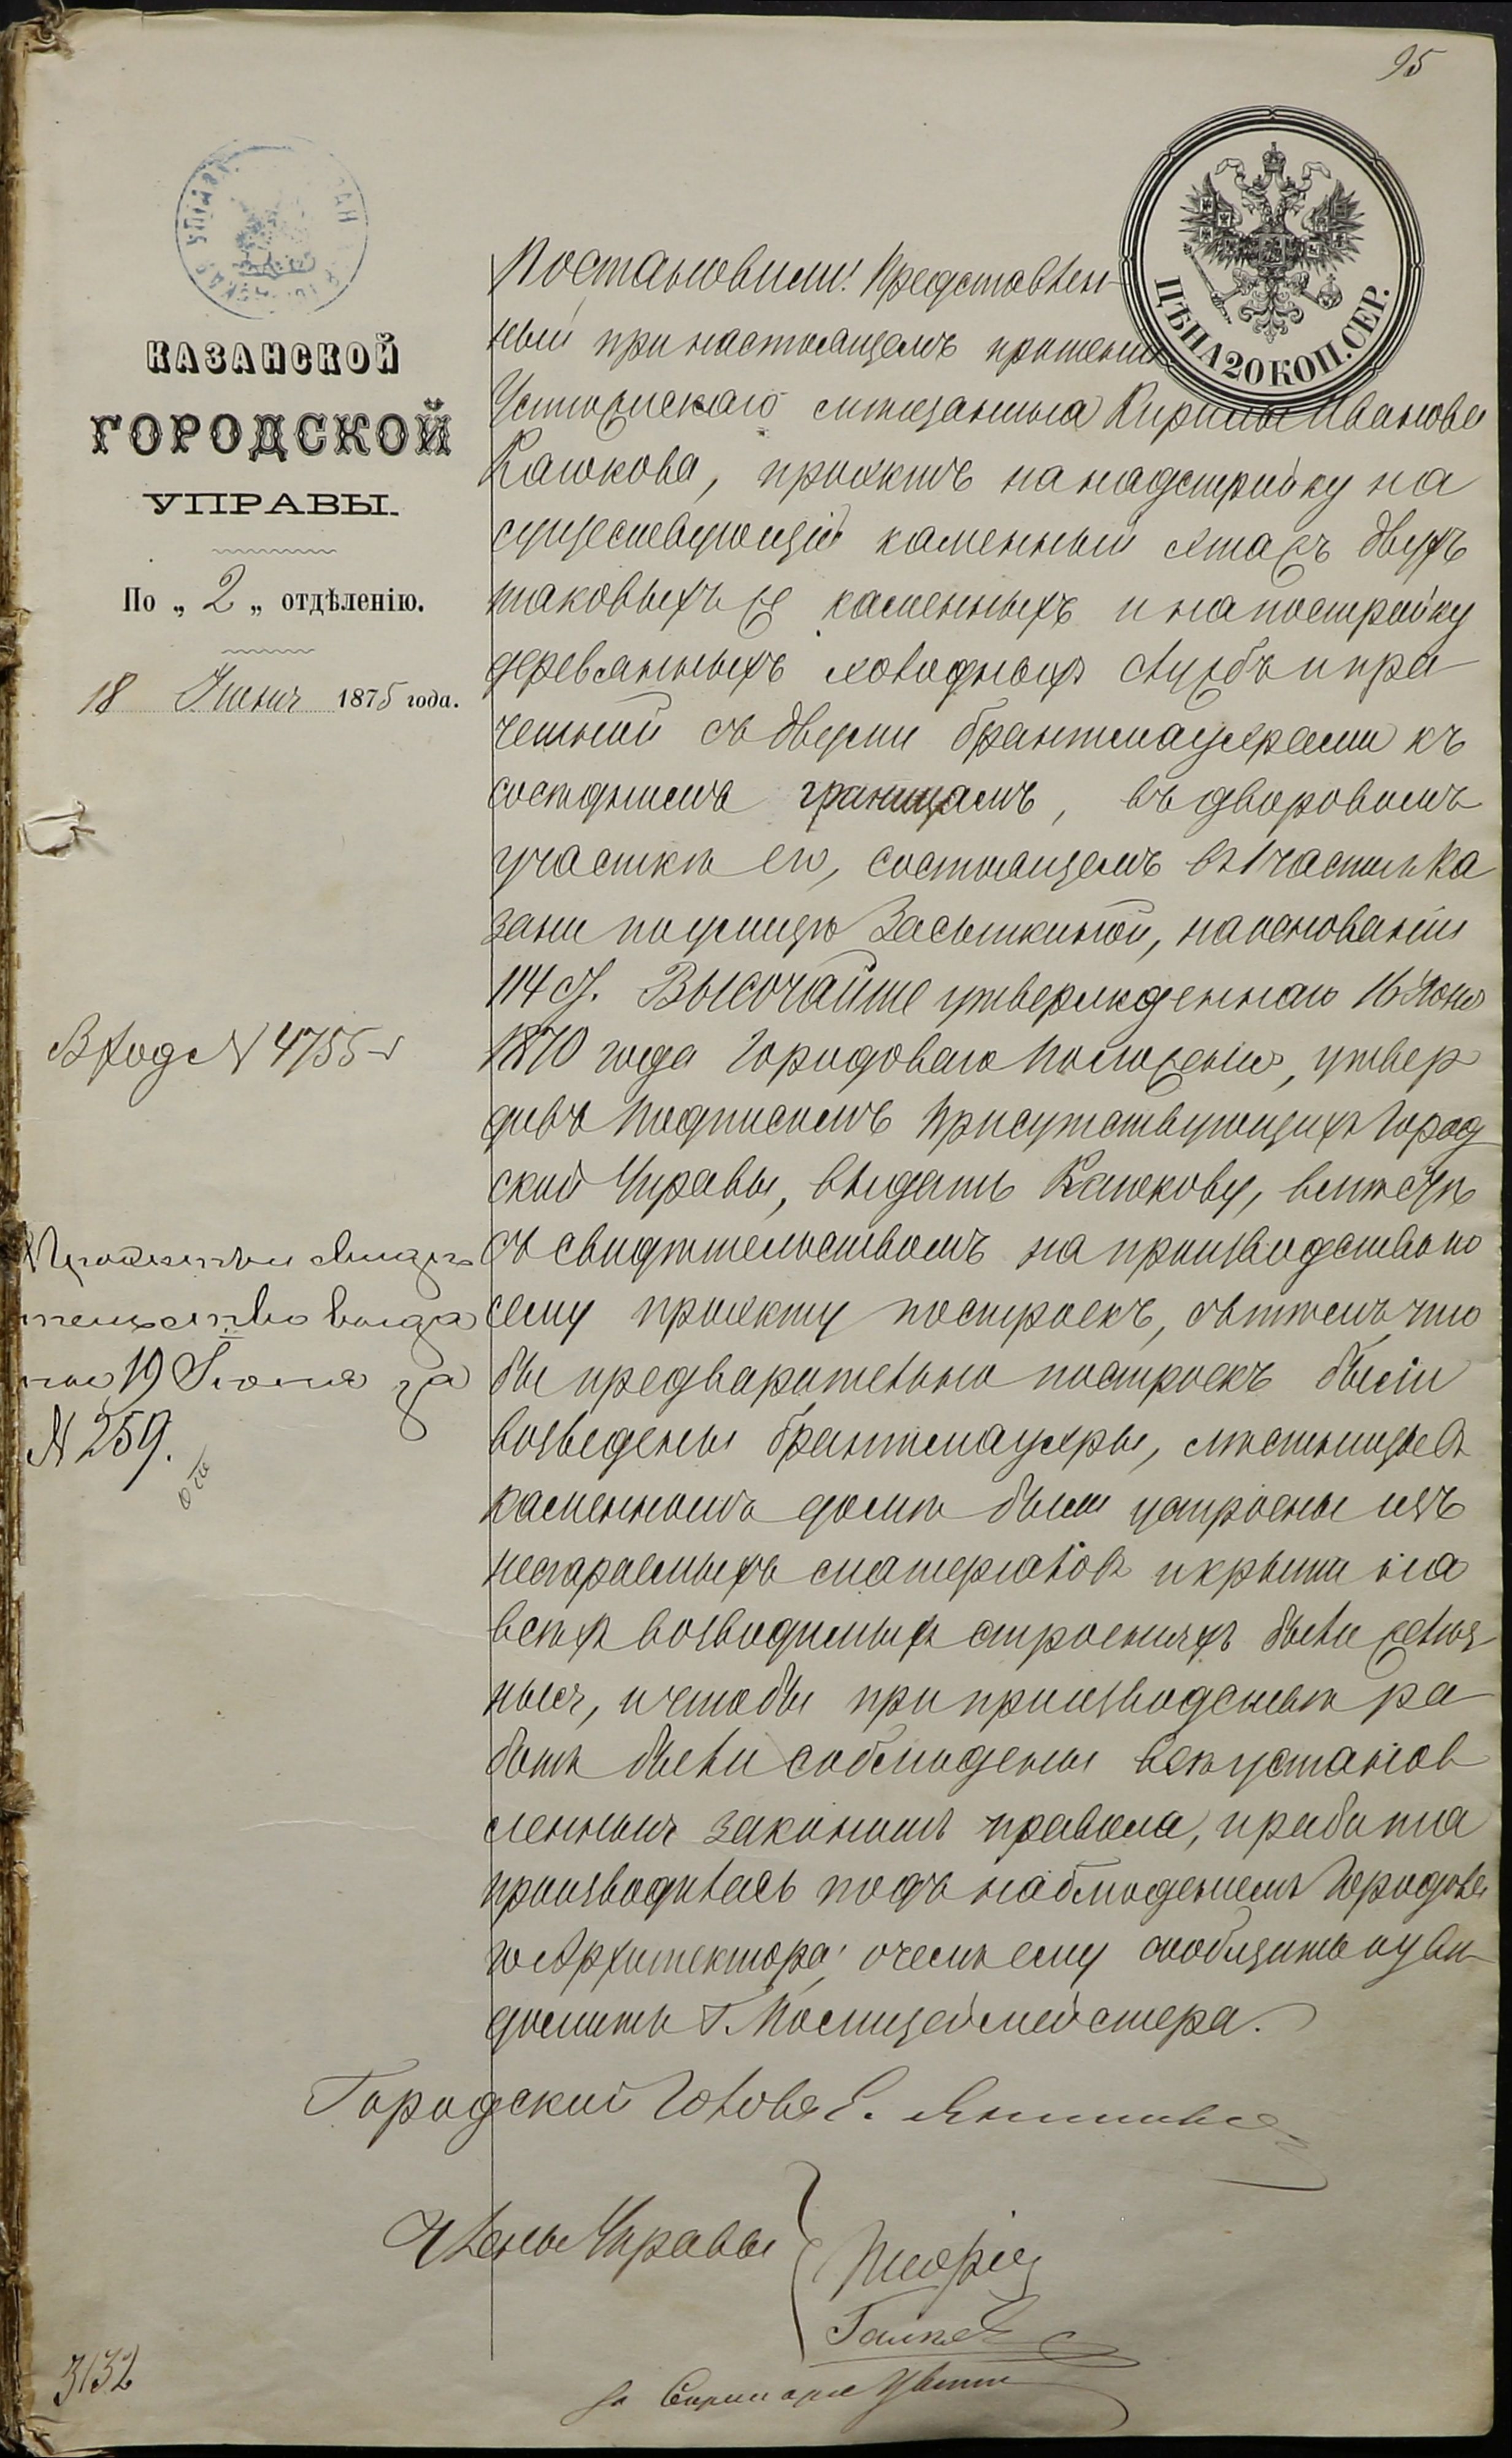 95
ЦѢНА 20 КОП. СЕР.
КАЗАНСКОЙ
ГОРОДСКОЙ
УПРАВЫ.
По „ 2 „ отдѣленію.
18 Июня 1875 года.
Вход № 4755
свидѣ
тельство выда
но 19 Іюня за
№ 259.
3132
Постановили: Представлен-
ный при настоящемъ прошении
мѣщанина Кирилы Иванова
Кашкова, проэктъ на надстройку на
существующій каменный этажъ двухъ
таковыхъ же каменныхъ и на постройку
деревянныхъ холодныхъ службъ и пра
чешной съ двумя брантмауерами къ
сосѣднимъ границамъ, въ дворовомъ
участкѣ его, состоящемъ въ 1 части г. Ка
зани по улицѣ Засыпкиной, на основаніи
114 ст. Высочайше утвержденнаго 16 Июня
1870 года Городоваго Положенія, утвер
дивъ подписомъ Присутствующихъ Город
ской Управы, выдать Кашкову, вмѣстѣ
съ свидѣтельствомъ на производство по
сему проэкту построекъ, съ тѣмъ, что
бы предварительно построекъ были
возведены брантмауеры, лѣстницы въ
каменномъ домѣ были устроены изъ
несгараемыхъ матеріаловъ и крыши на
всѣхъ возводимыхъ строеніяхъ были желѣз
ныя, и чтобы при производствѣ ра
ботъ были соблюдены всѣ установ
ленныя закономъ правила, и работа
производилась подъ наблюденіемъ Городова
го Архитектора; о чемъ ему сообщить и уве
домить Г. Полицеймейстера.
Городской Голова Е. Янишевс
Члены Управы
за Секретаря